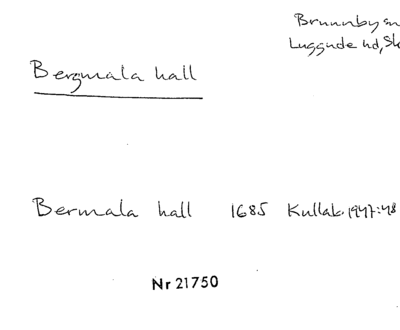 Brunnby sn
Luggude hd, Sk
Bergmala hall
Bermala hall 1685 Kullab. 1947:48
Nr 21750